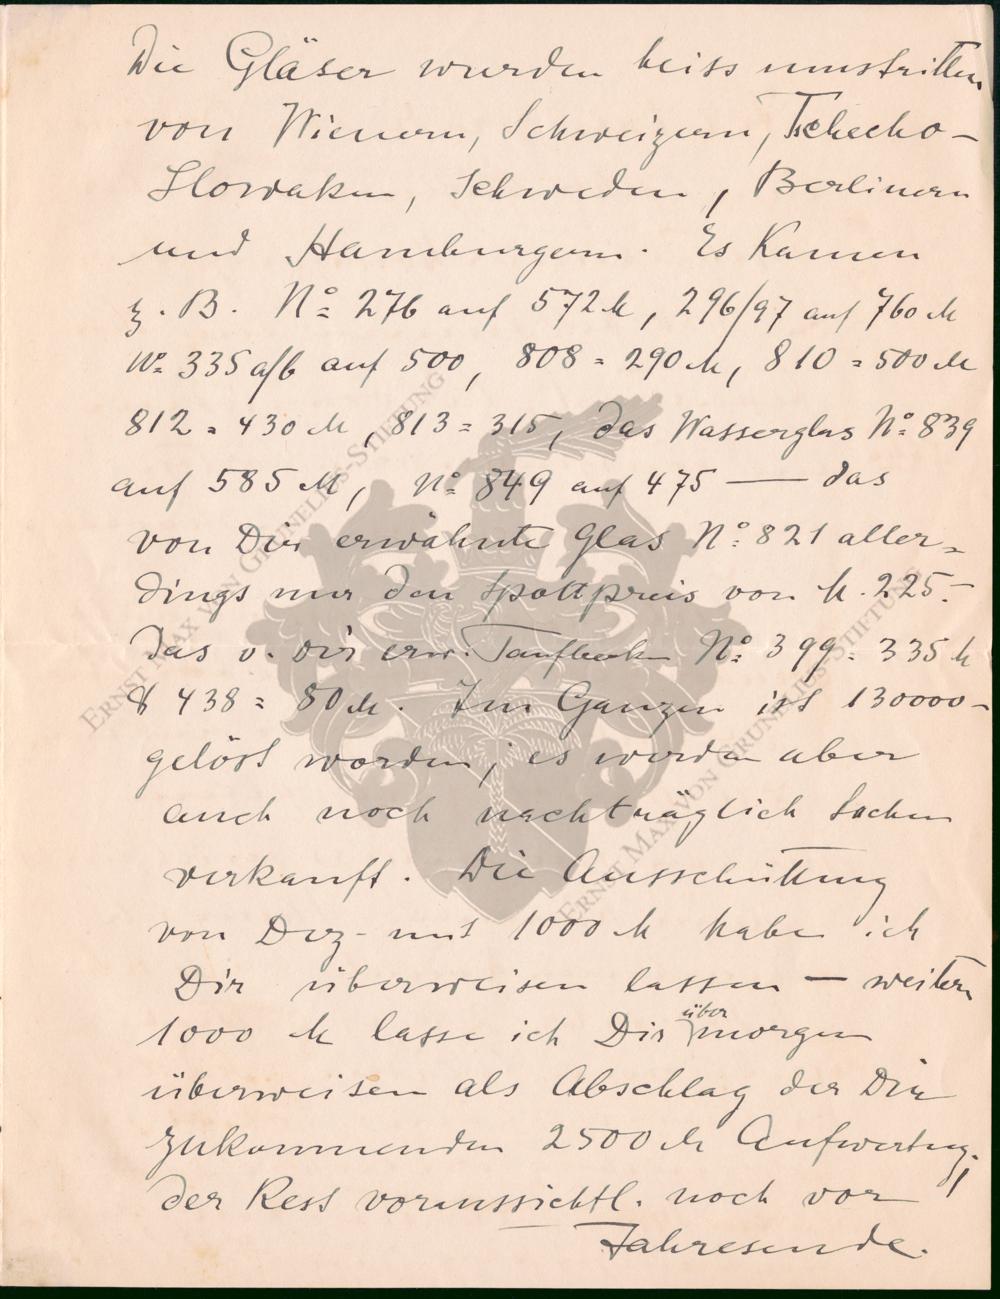 Die Gläser wurden heiss umstritten
von Wienern, Schweizern, Tschecho-
Slowaken, Schweden, Berlinern
und Hamburgern. Es kamen
z. B. No 276 auf 572 M, 296/97 auf 760 M
No 335 a/b auf 500, 808 = 290 M, 810 = 500 M
812 = 430 M, 813 = 315, das Wasserglas No 839
auf 585 M, No 849 auf 475 — das
von Dir erwähnte Glas No 821 aller-
dings nur den Spottpreis von M. 225.-
Das v. Dir erw. Taufbecken No 399 = 335 M
& 438 = 80 M. Im Ganzen ist 130000-
gelöst worden, es werden aber
auch noch nachträglich Sachen
verkauft. Die Ausschüttung
von Dez- mit 1000 M habe ich
Dir überweisen lassen — weitere
1000 M lasse ich Dir übermorgen
überweisen als Abschlag der Dir
zukommenden 2500 M Aufwertung,
der Rest voraussichtl. noch vor
Jahresende.
ERNST MAX VON GRUNELIUS-STIFTUNG
ERNST MAX VON GRUNELIUS-STIFTUNG